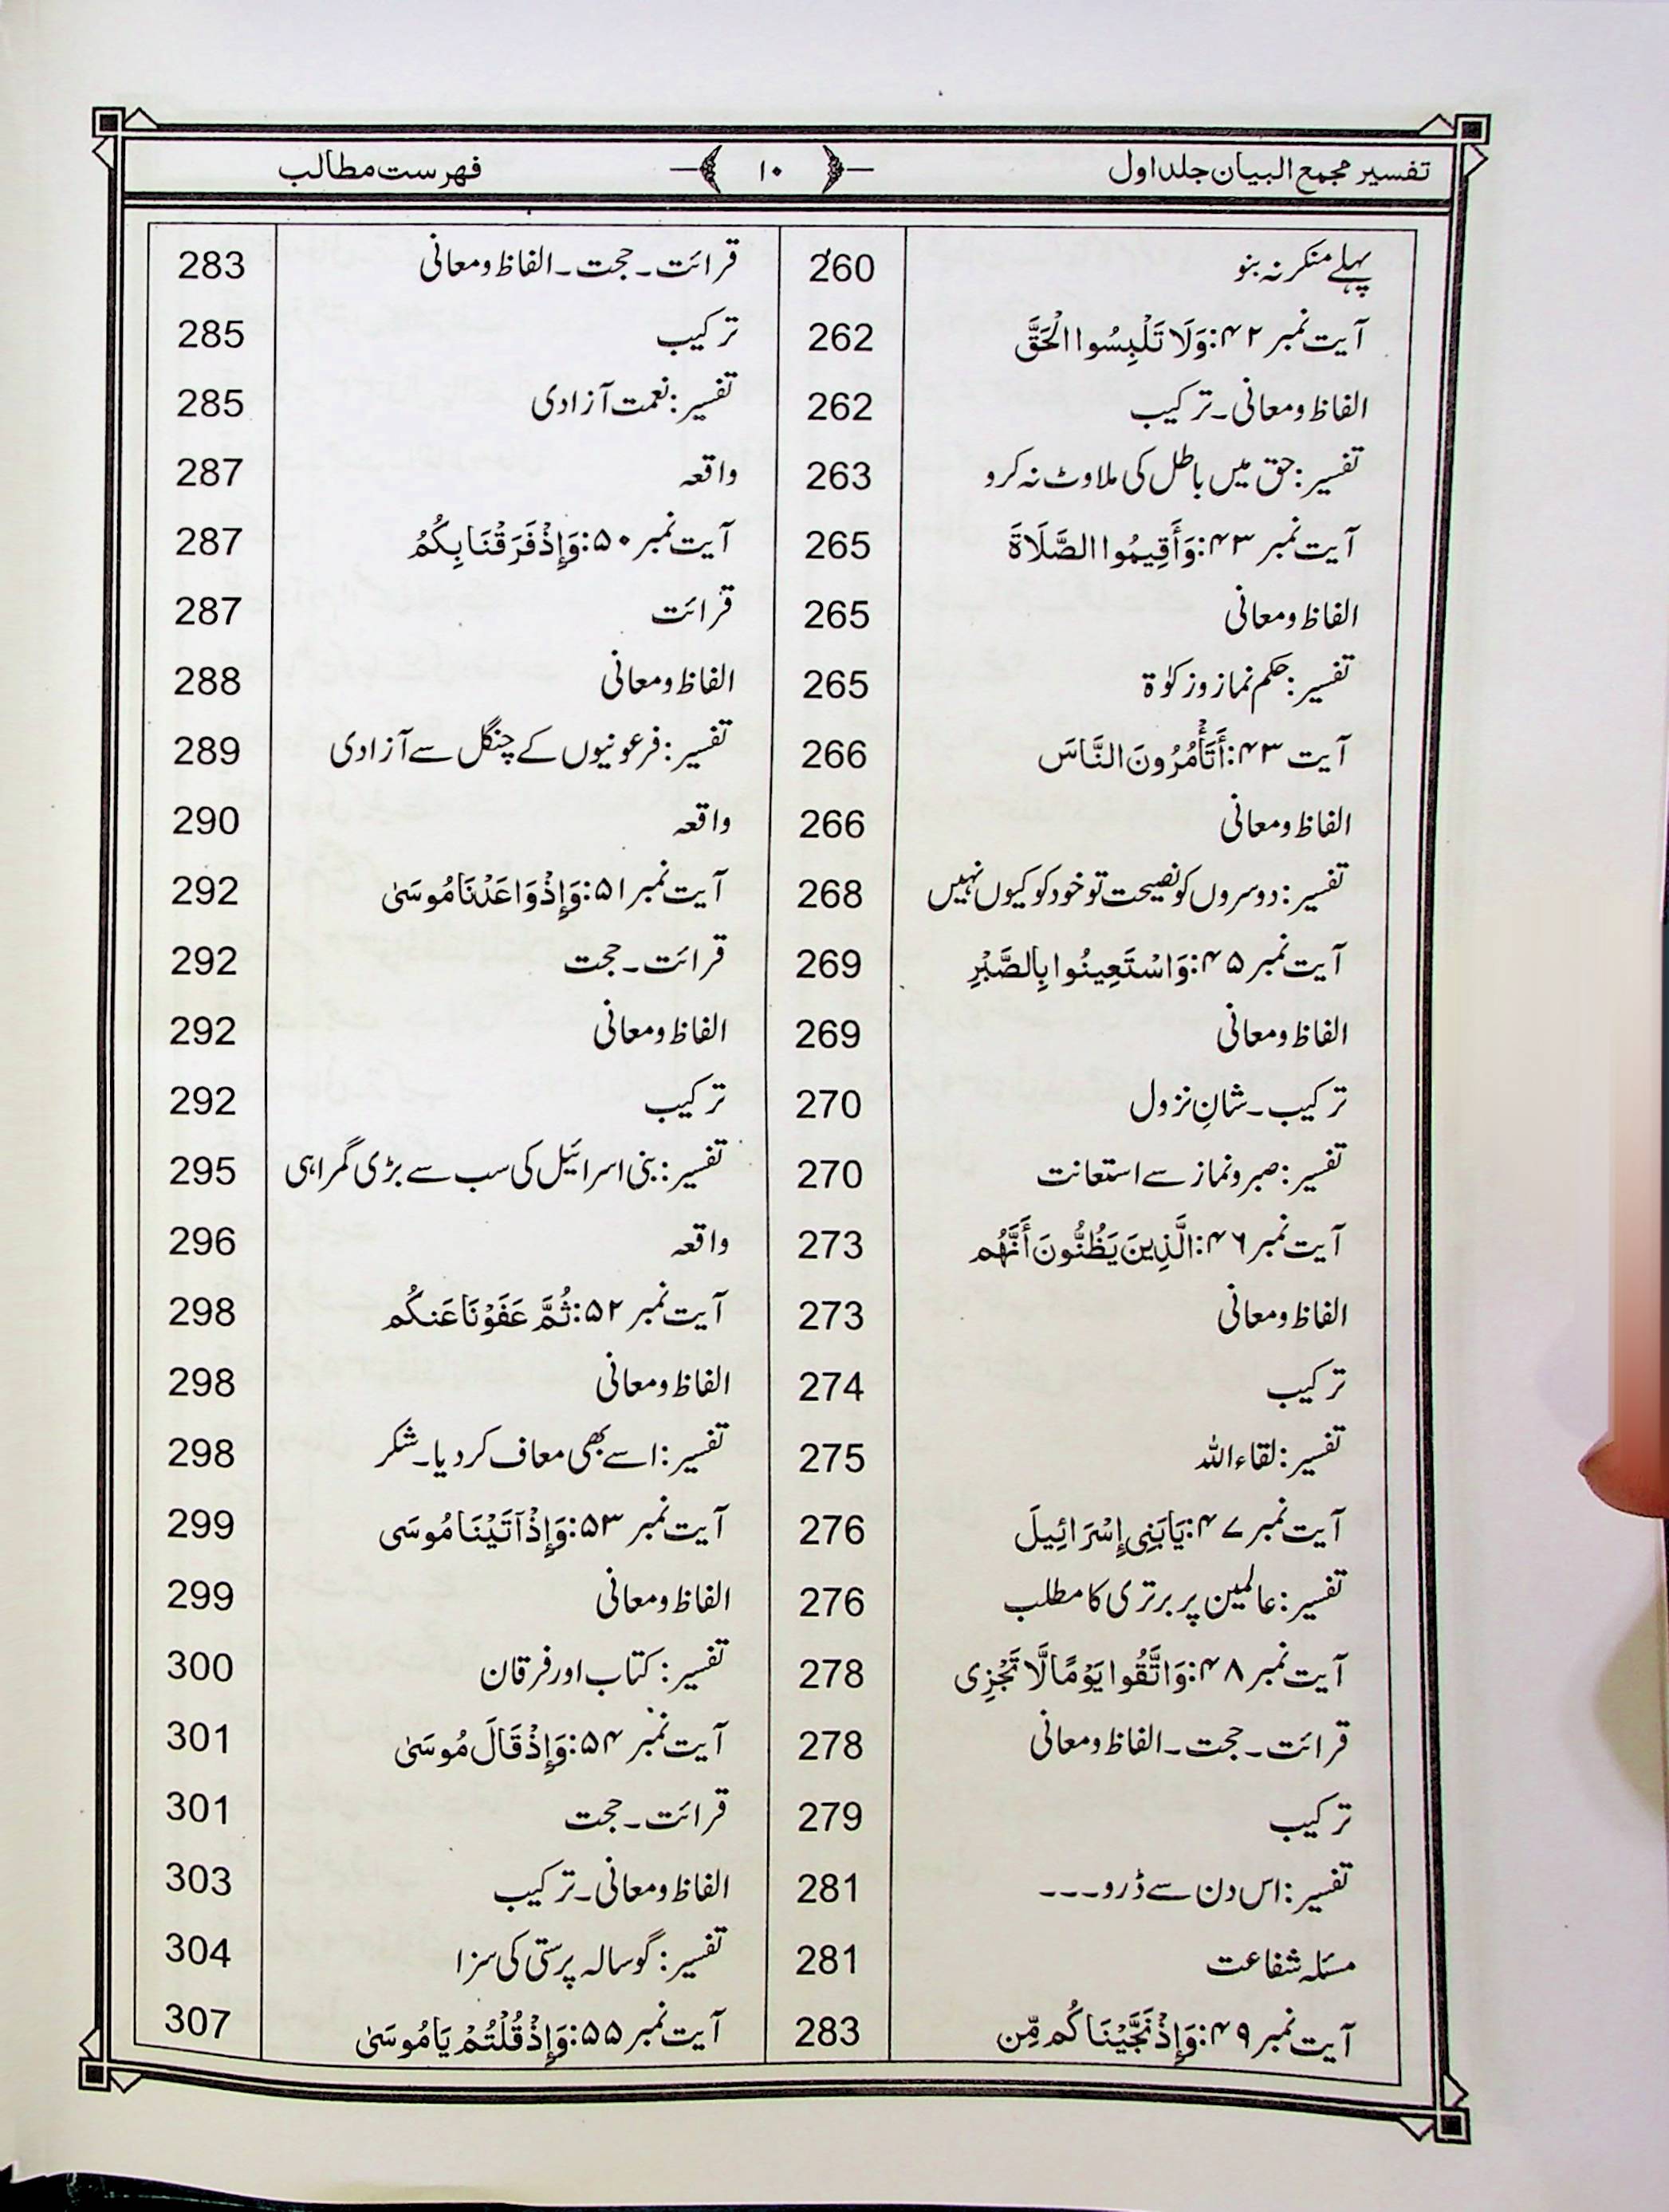 تفسیر مجمع البیان جلد اول ۱۰ فہرست مطالب
پہلے منکر نہ بنو 260
آیت نمبر ۴۲: وَلَا تَلْبِسُوا الْحَقَّ 262
الفاظ و معانی۔ ترکیب 262
تفسیر: حق میں باطل کی ملاوٹ نہ کرو 263
آیت نمبر ۴۳: وَأَقِيمُوا الصَّلَاةَ 265
الفاظ و معانی 265
تفسیر: حکم نماز و زکوٰۃ 265
آیت ۴۳: أَتَأْمُرُونَ النَّاسَ 266
الفاظ و معانی 266
تفسیر: دوسروں کو نصیحت تو خود کو کیوں نہیں 268
آیت نمبر ۴۵: وَاسْتَعِينُوا بِالصَّبْرِ 269
الفاظ و معانی 269
ترکیب۔ شانِ نزول 270
تفسیر: صبر و نماز سے استعانت 270
آیت نمبر ۴۶: الَّذِينَ يَظُنُّونَ أَنَّهُم 273
الفاظ و معانی 273
ترکیب 274
تفسیر: لقاء اللہ 275
آیت نمبر ۴۷: يَا بَنِي إِسْرَائِيلَ 276
تفسیر: عالمین پر برتری کا مطلب 276
آیت نمبر ۴۸: وَاتَّقُوا يَوْمًا لَّا تَجْزِي 278
قرائت۔ حجت۔ الفاظ و معانی 278
ترکیب 279
تفسیر: اس دن سے ڈرو۔۔۔ 281
مسئلہ شفاعت 281
آیت نمبر ۴۹: وَإِذْ نَجَّيْنَاكُم مِّن 283
قرائت۔ حجت۔ الفاظ و معانی 283
ترکیب 285
تفسیر: نعمت آزادی 285
واقعہ 287
آیت نمبر ۵۰: وَإِذْ فَرَقْنَا بِكُمُ 287
قرائت 287
الفاظ و معانی 288
تفسیر: فرعونیوں کے چنگل سے آزادی 289
واقعہ 290
آیت نمبر ۵۱: وَإِذْ وَاعَدْنَا مُوسَىٰ 292
قرائت۔ حجت 292
الفاظ و معانی 292
ترکیب 292
تفسیر: بنی اسرائیل کی سب سے بڑی گمراہی 295
واقعہ 296
آیت نمبر ۵۲: ثُمَّ عَفَوْنَا عَنكُم 298
الفاظ و معانی 298
تفسیر: اسے بھی معاف کر دیا۔ شکر 298
آیت نمبر ۵۳: وَإِذْ آتَيْنَا مُوسَى 299
الفاظ و معانی 299
تفسیر: کتاب اور فرقان 300
آیت نمبر ۵۴: وَإِذْ قَالَ مُوسَىٰ 301
قرائت۔ حجت 301
الفاظ و معانی۔ ترکیب 303
تفسیر: گوسالہ پرستی کی سزا 304
آیت نمبر ۵۵: وَإِذْ قُلْتُمْ يَا مُوسَىٰ 307